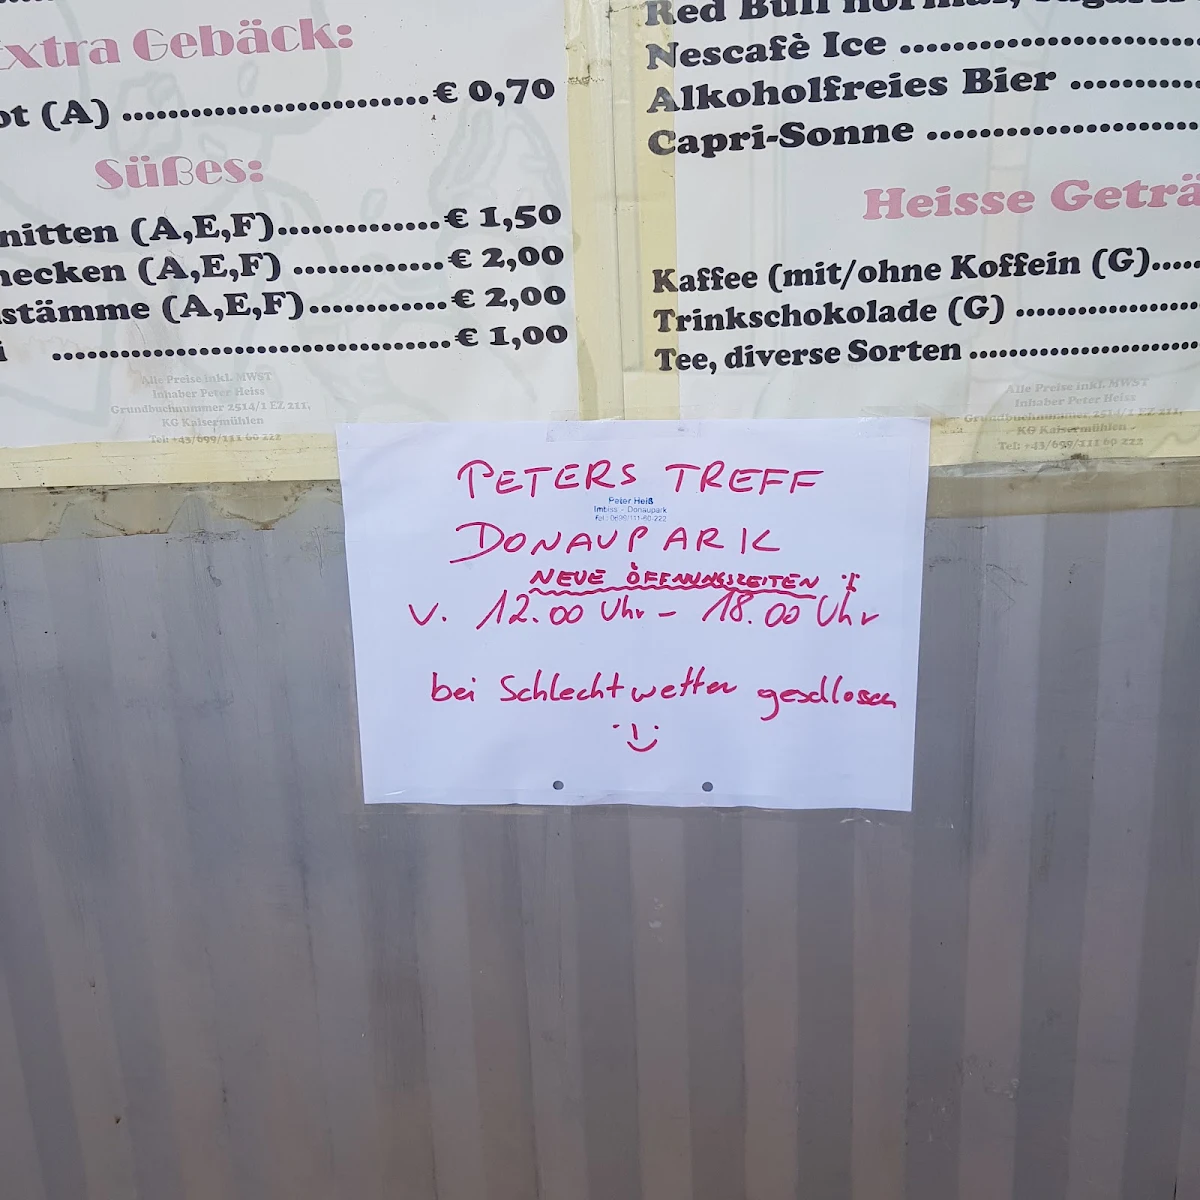 Extra Gebäck:
(A) .......................... € 0,70
Süßes:
(A,E,F).............. € 1,50
(A,E,F) ............. € 2,00
(A,E,F)............ € 2,00
.................................. € 1,00
Alle Preise inkl. MWST
Inhaber Peter Heiss
Grundbuchnummer 2514/1 EZ 211,
KG Kaisermühlen
Tel: +43/699/111 60 222
Red Bull normal,
Nescafè Ice
Alkoholfreies Bier
Capri-Sonne
Heisse Geträ
Kaffee (mit/ohne Koffein (G)
Trinkschokolade (G)
Tee, diverse Sorten
Alle Preise inkl. MWST
Inhaber Peter Heiss
Grundbuchnummer 2514/1 EZ 211,
KG Kaisermühlen
Tel: +43/699/111 60 222
PETERS TREFF
Peter Heiß
Imbiss - Donaupark
Tel.: 0699/111-60-222
DONAUPARK
NEUE ÖFFNUNGSZEITEN
V. 12.00 Uhr - 18.00 Uhr
bei Schlechtwetter geschlossen